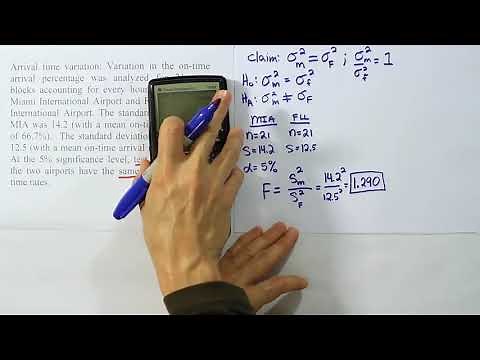 Arrival time variation: Variation in the on-time
arrival percentage was analyzed
blocks accounting for every hour
Miami International Airport and F
International Airport. The standar
MIA was 14.2 (with a mean on-
of 66.7%). The standard deviatio
12.5 (with a mean on-time arrival
At the 5% significance level, tes
the two airports have the same
time rates.
Claim: σ²m = σ²F ; σ²m/σ²f = 1
H₀: σ²m = σ²f
HA: σ²m ≠ σF
MIA FLL
n=21 n=21
S=14.2 S=12.5
α=5%
F = S²m/S²F = 14.2²/12.5² = 1.290